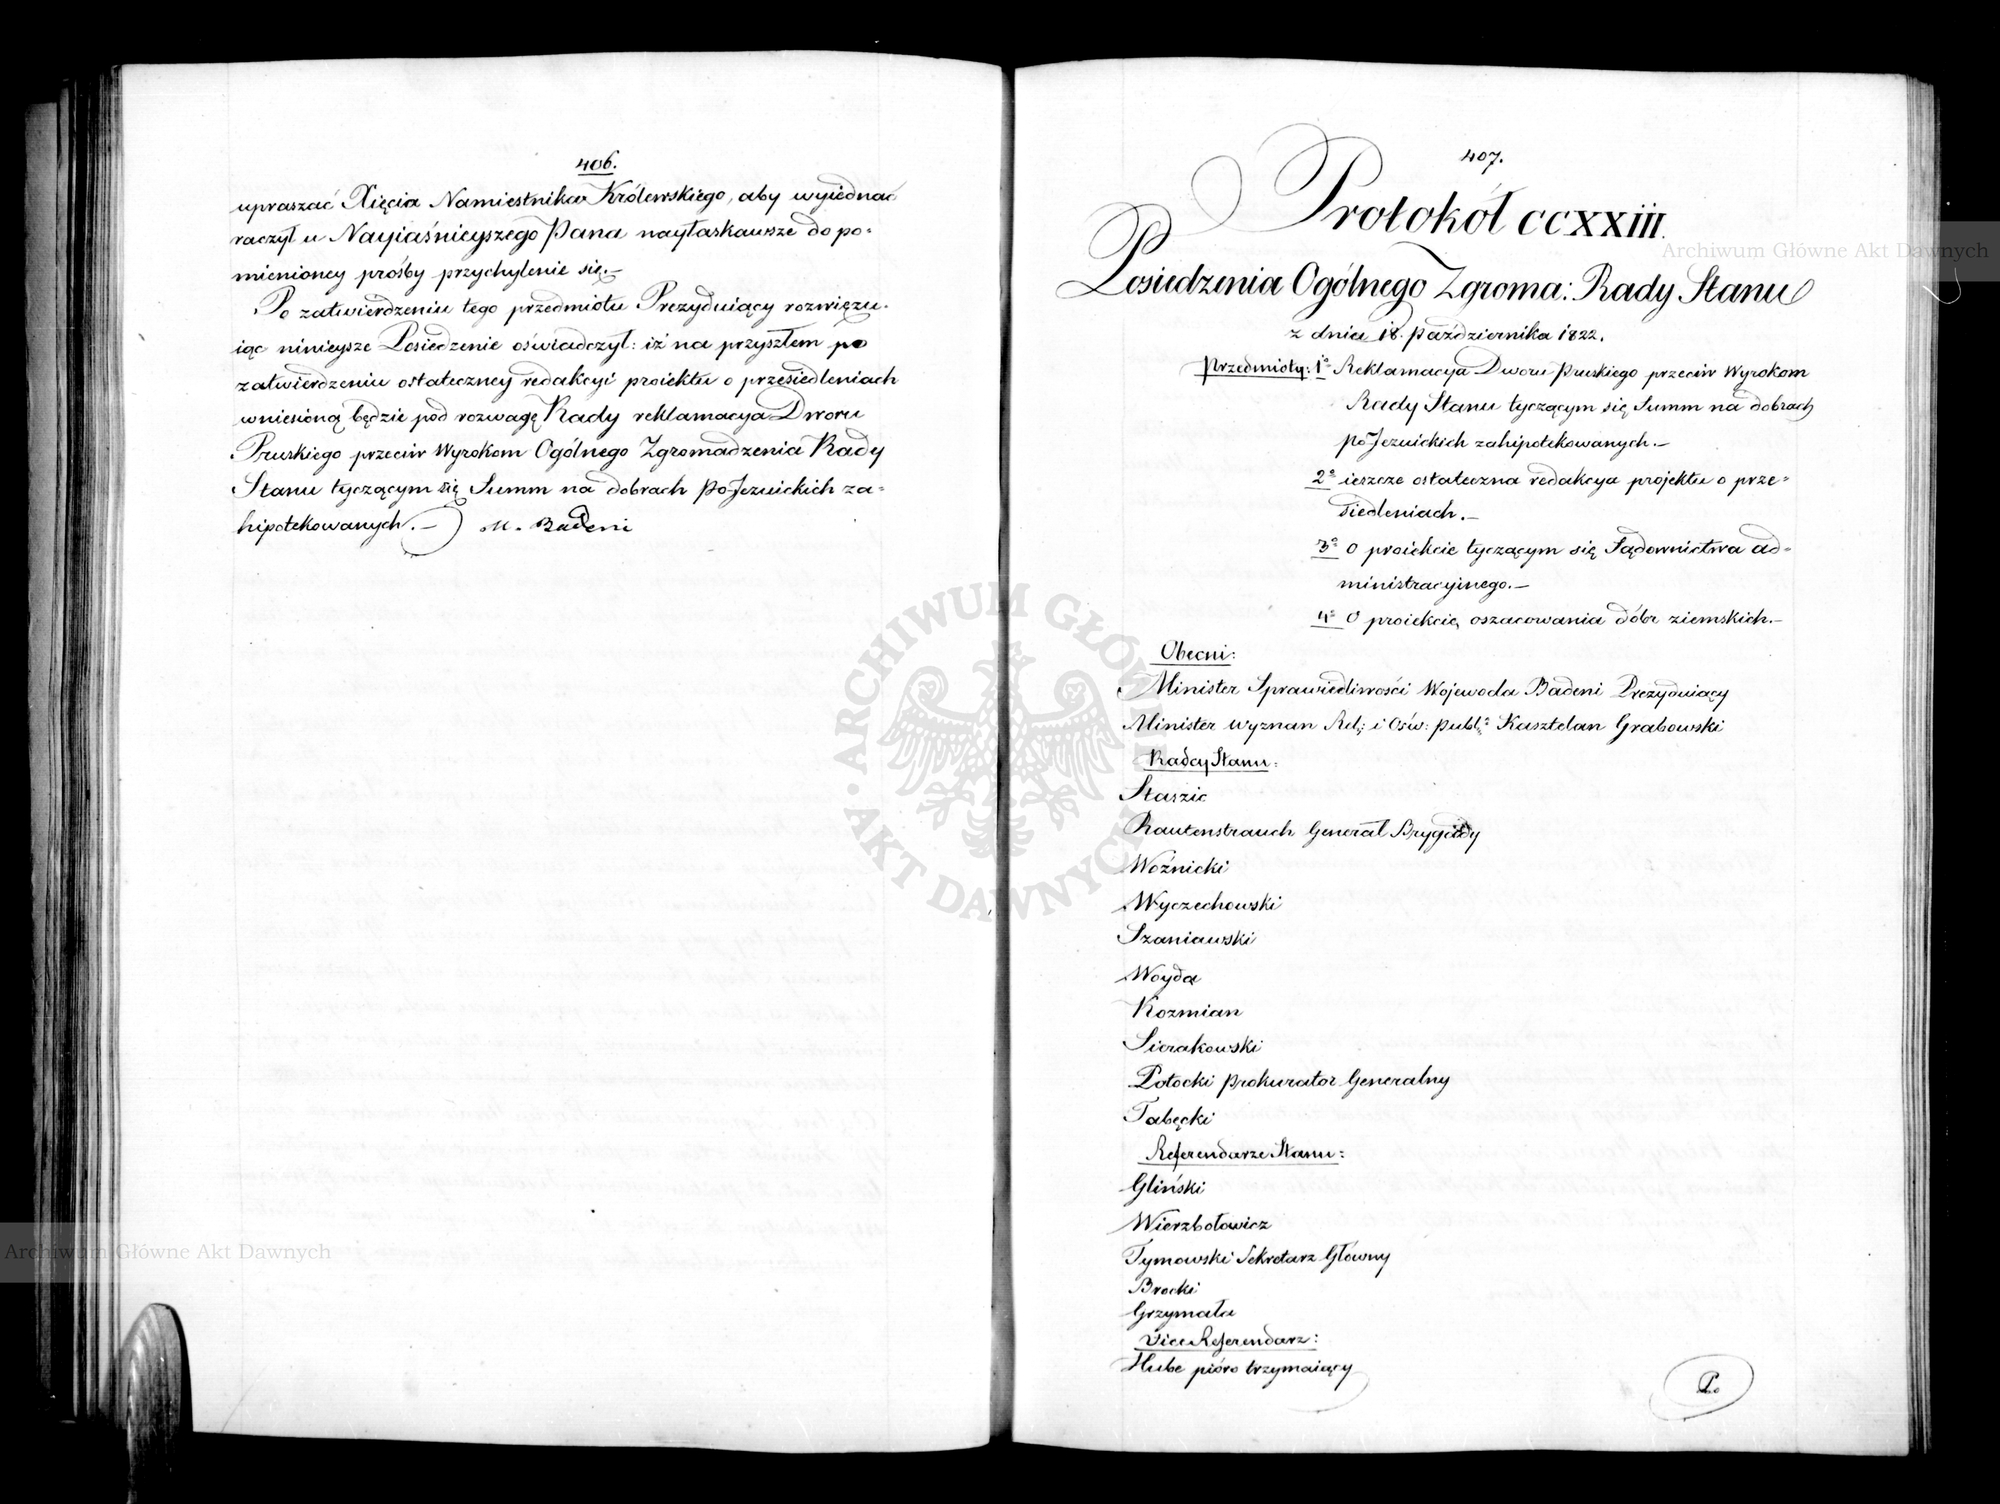 406.
upraszać Xięcia Namiestnika Królewskiego, aby wyiednać
raczył u Nayiaśnieyszego Pana nayłaskawsze do po-
mienioney prośby przychylenie się.—
Po zatwierdzeniu tego przedmiotu Prezyduiący rozwięzu-
iąc ninieysze Posiedzenie oświadczył: iż na przyszłem po
zatwierdzeniu ostateczney redakcyi proiektu o przesiedleniach
wniesioną będzie pod rozwagę Rady reklamacya Dworu
Pruskiego przeciw Wyrokom Ogólnego Zgromadzenia Rady
Stanu tyczącym się Summ na dobrach PoJezuickich za-
hipotekowanych.— M. Badeni
407.
Protokół CCXXIII.
Posiedzenia Ogólnego Zgroma: Rady Stanu
z dnia 18. Października 1822.
Przedmioty: 1º Reklamacya Dworu Pruskiego przeciw Wyrokom
Rady Stanu tyczącym się Summ na dobrach
poJezuickich zahipotekowanych.—
2º ieszcze ostateczna redakcya projektu o prze-
siedleniach.—
3º O proiekcie tyczącym się Sądownictwa ad-
ministracyjnego.—
4º O proiekcie oszacowania dóbr ziemskich.—
Obecni:
Minister Sprawiedliwości Wojewoda Badeni Prezyduiący
Minister Wyznan Rel: i Ośw: publ: Kasztelan Grabowski
Radcy Stanu:
Staszic
Rautenstrauch Generał Brygady
Woźnicki
Wyczechowski
Szaniawski
Woyda
Kozmian
Sierakowski
Potocki Prokurator Generalny
Tabęcki
Referendarze Stanu:
Gliński
Wierzbołowicz
Tymowski Sekretarz Główny
Brocki
Grzymała
Vice Referendarz:
Hube pióro trzymaiący
Po
Archiwum Główne Akt Dawnych
ARCHIWUM GŁÓWNE AKT DAWNYCH
Archiwum Główne Akt Dawnych